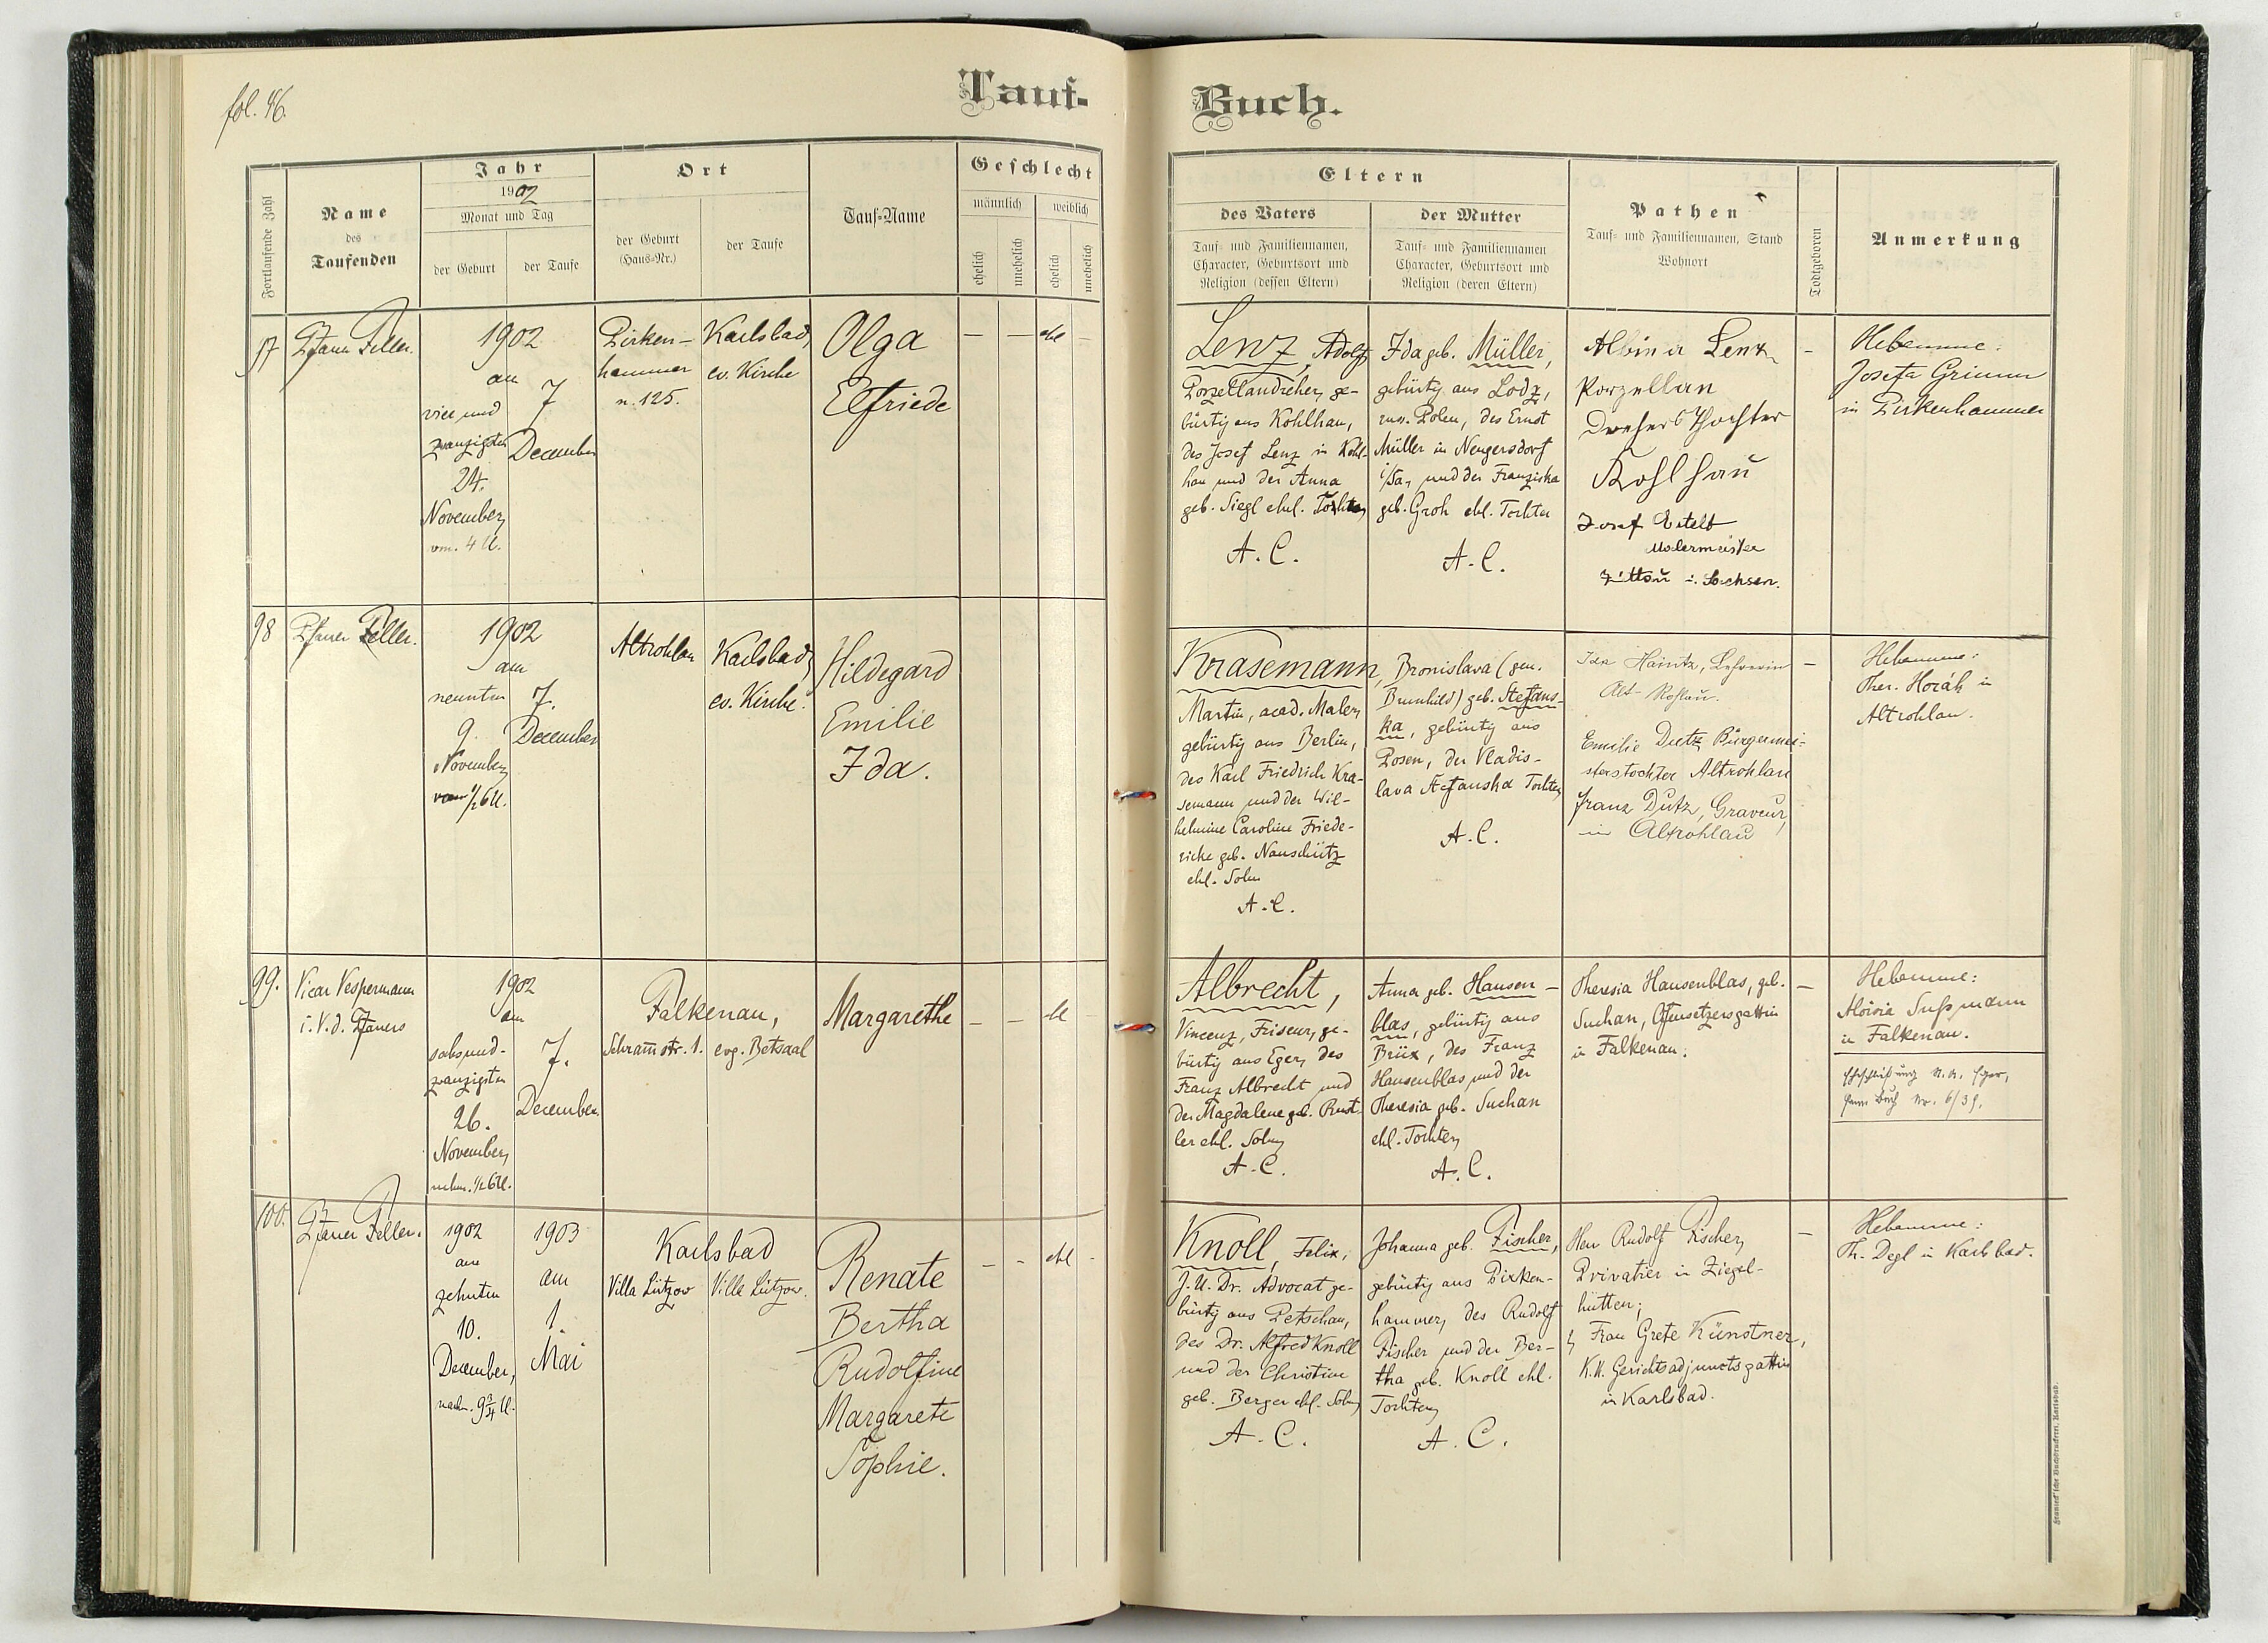 fol. 46.
Tauf-
Buch.
Fortlaufende Zahl
Name
des
Taufenden
Jahr
1902
Monat und Tag
der Geburt
der Taufe
Ort
der Geburt
(Haus-Nr.)
der Taufe
Tauf-Name
Geschlecht
männlich
weiblich
ehelich
unehelich
ehelich
unehelich
Eltern
des Vaters
Tauf- und Familiennamen,
Character, Geburtsort und
Religion (dessen Eltern)
der Mutter
Tauf- und Familiennamen
Character, Geburtsort und
Religion (deren Eltern)
Pathen
Tauf- und Familiennamen, Stand
Wohnort
Todtgeboren
Anmerkung
97
Pfarrer Feller.
1902
am
vier und
zwanzigsten
24.
November,
vm. 4 U.
7
December
Pirken-
hammer
n. 125.
Karlsbad,
ev. Kirche
Olga
Elfriede
— — ehl –
Lenz, Adolf,
Porzellandreher, ge-
bürtig aus Kohlhau,
des Josef Lenz in Kohl-
hau und der Anna
geb. Siegl ehel.
A. C.
Ida geb. Müller,
gebürtig aus Lodz,
russ. Polen, des Ernst
Müller in Neugersdorf
i/Sa, und der Franziska
geb. Groh ehl. Tochter
A. C.
Albina Lenz
Porzellan
Drehers Tochter
Kohlhau
Josef
Malermeister
Zittau i. Sachsen.
–
Hebamme:
Josefa Grimm
in Pirkenhammer
98
Pfarrer Feller.
1902
am
neunten
9.
November
1/2 6 U.
7.
December
Altrohlau
Karlsbad,
ev. Kirche.
Hildegard
Emilie
Ida.
Krasemann,
Martin, acad. Maler,
gebürtig aus Berlin,
des Karl Friedrich Kra-
semann und der Wil-
helmine Caroline Friede-
ricke geb. Nauschütz
ehl. Sohn
A. C.
Bronislava (gen.
Brunhild) geb. Stefans-
ka, gebürtig aus
Posen, der Vladis-
lava Stefanska Tochter,
A. C.
Ida Haintz, Lehrerin
Alt-Rohlau.
Emilie Dutz Bürgermei-
sterstochter Altrohlau
Franz Dutz, Graveur,
in Altrohlau
–
Hebamme:
Ther. Horák in
Altrohlau.
99.
Vicar Vespermann
i. V. d. Pfarrers
1902
am
sechsund-
zwanzigsten
26.
November,
nchm. 1/2 6 U.
7.
December.
Falkenau,
Schramstr. 1.
evg. Betsaal
Margarethe
– – ehl –
Albrecht,
Vincenz, Friseur, ge-
bürtig aus Eger, des
Franz Albrecht und
der Magdalene geb. Rust-
ler ehl. Sohn,
A. C.
Anna geb. Hausen-
blas, gebürtig aus
Brüx, des Franz
Hausenblas und der
Theresia geb. Suchan
ehl. Tochter,
A. C.
Theresia Hausenblas, geb.
Suchan, Ofensetzersgattin
in Falkenau.
–
Hebamme:
Aloisia Sußmann
in Falkenau.
Eheschließung St. A. Eger,
Fam. Buch Nr. 6/39.
100.
Pfarrer Feller.
1902
am
zehnten
10.
December,
nachm. 9 3/4 U.
1903
am
1.
Mai
Karlsbad
Villa Lützow
Villa Lützow.
Renate
Bertha
Rudolfine
Margarete
Sophie.
– – ehl –
Knoll, Felix,
J. U. Dr. Advocat ge-
bürtig aus Petschau,
des Dr. Alfred Knoll
und der Christine
geb. Berger ehl. Sohn,
A. C.
Johanna geb. Fischer,
gebürtig aus Pirken-
hammer, des Rudolf
Fischer und der Ber-
tha geb. Knoll ehl.
Tochter,
A. C.
Herr Rudolf Fischer,
Privatier in Ziegel-
hütten;
Frau Grete Künstner,
K.K. Gerichtsadjunctsgattin
in Karlsbad.
–
Hebamme:
Th. Degl in Karlsbad.